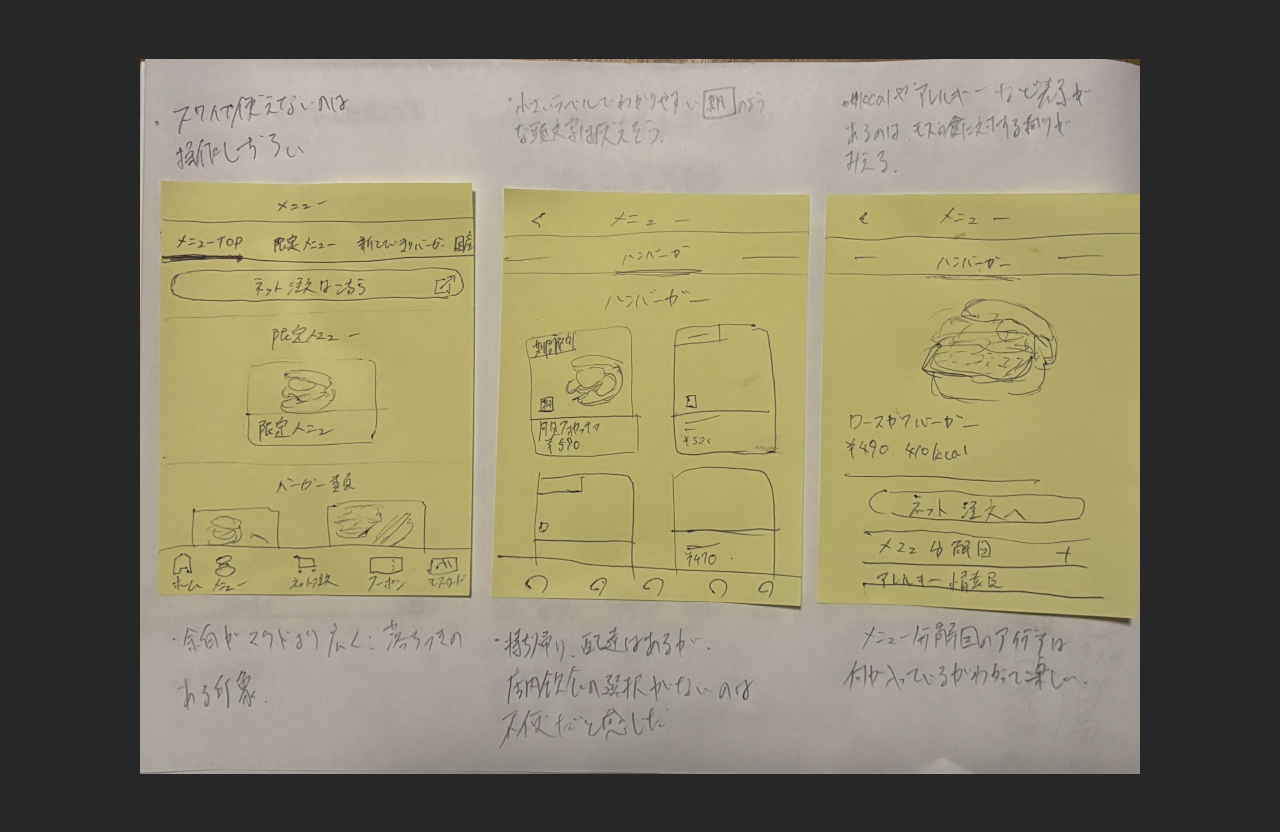 ・スワイプで使えないのは
操作しづらい
・小さいラベルでわかりやすい 朝 のよう
な頭文字は使えそう。
・kcalやアレルギーなど表示が
あるのは、モスの食に対する拘りが
みえる。
メニュー
メニューTOP 限定メニュー
ネット注文はこちら
限定メニュー
限定メニュー
バーガー類
ホーム メニュー ネット注文 クーポン モスカード
< メニュー
ハンバーガー
ハンバーガー
期間限定
朝
¥590
¥520
¥470
< メニュー
ハンバーガー
ロースカツバーガー
¥490 410kcal
ネット注文へ
メニュー分解図 +
アレルギー情報
・余白がマクドより広く、落ちつきの
ある印象。
・持ち帰り、配達はあるが、
店内飲食の選択がないのは
不便だと感じた
メニュー分解図のアイデアは
何が入っているかわかって楽しい。